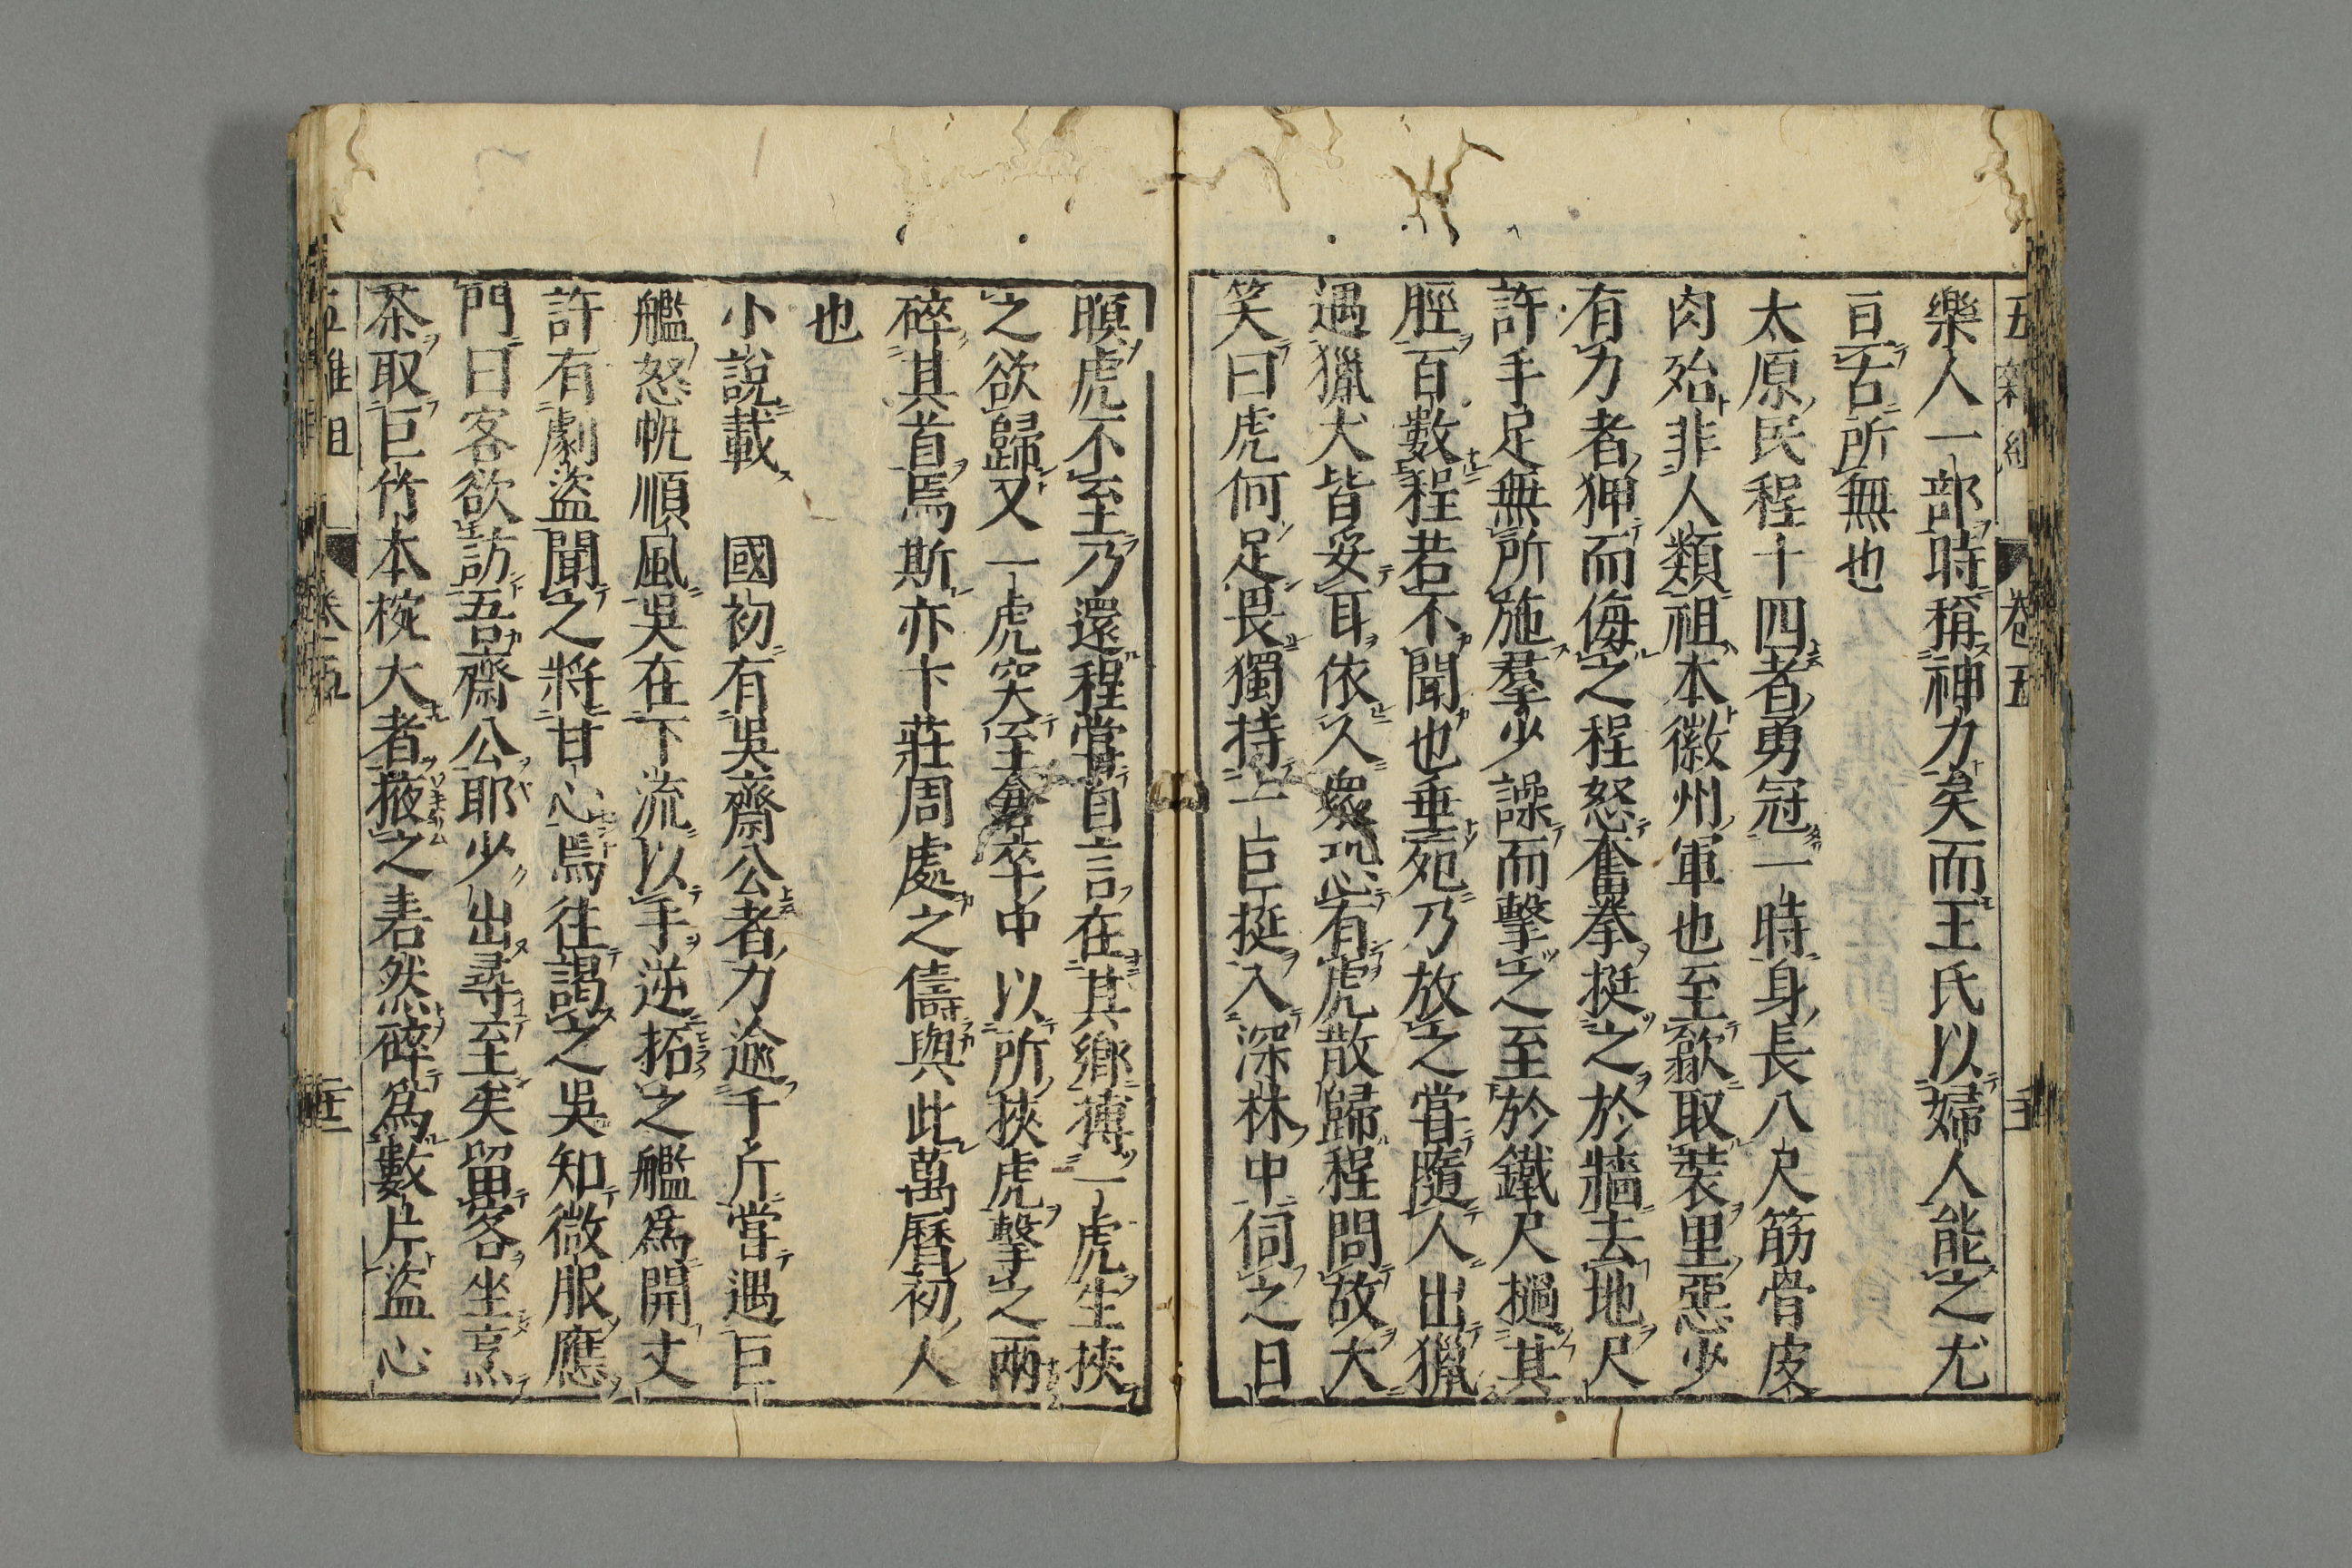 五雜組 卷五
樂人一部時稱神力矣而王氏以婦人能之尤
亘古所無也
太原民程十四者勇冠一時身長八尺筋骨皮
肉殆非人類祖本徽州軍也至歙取裝里惡少
有力者狎而侮之程怒奮拳挺之於牆去地尺
許手足無所施羣少譟而擊之至於鐵尺撾其
脛百數程若不聞也垂死乃放之甞隨人出獵
遇獵犬皆妥耳依人衆恐有虎散歸程問故大
笑曰虎何足畏獨持一巨挺入深林中伺之日
暝虎不至乃還程甞自言在其鄉搏一虎生挾
之欲歸又一虎突至倉卒中以所挾虎擊之兩
碎其首焉斯亦卞莊周處之儔與此萬曆初人
也
小說載 國初有吳齋公者力逾千斤甞遇巨
艦怒帆順風吳在下流以手逆拓之艦爲開丈
許有劇盜聞之將甘心焉徃謁之吳知微服應
門曰客欲訪吾齋公耶少出尋至矣留客坐烹
茶取巨竹本椀大者掖之砉然碎爲數片盜心
五雜組 卷五